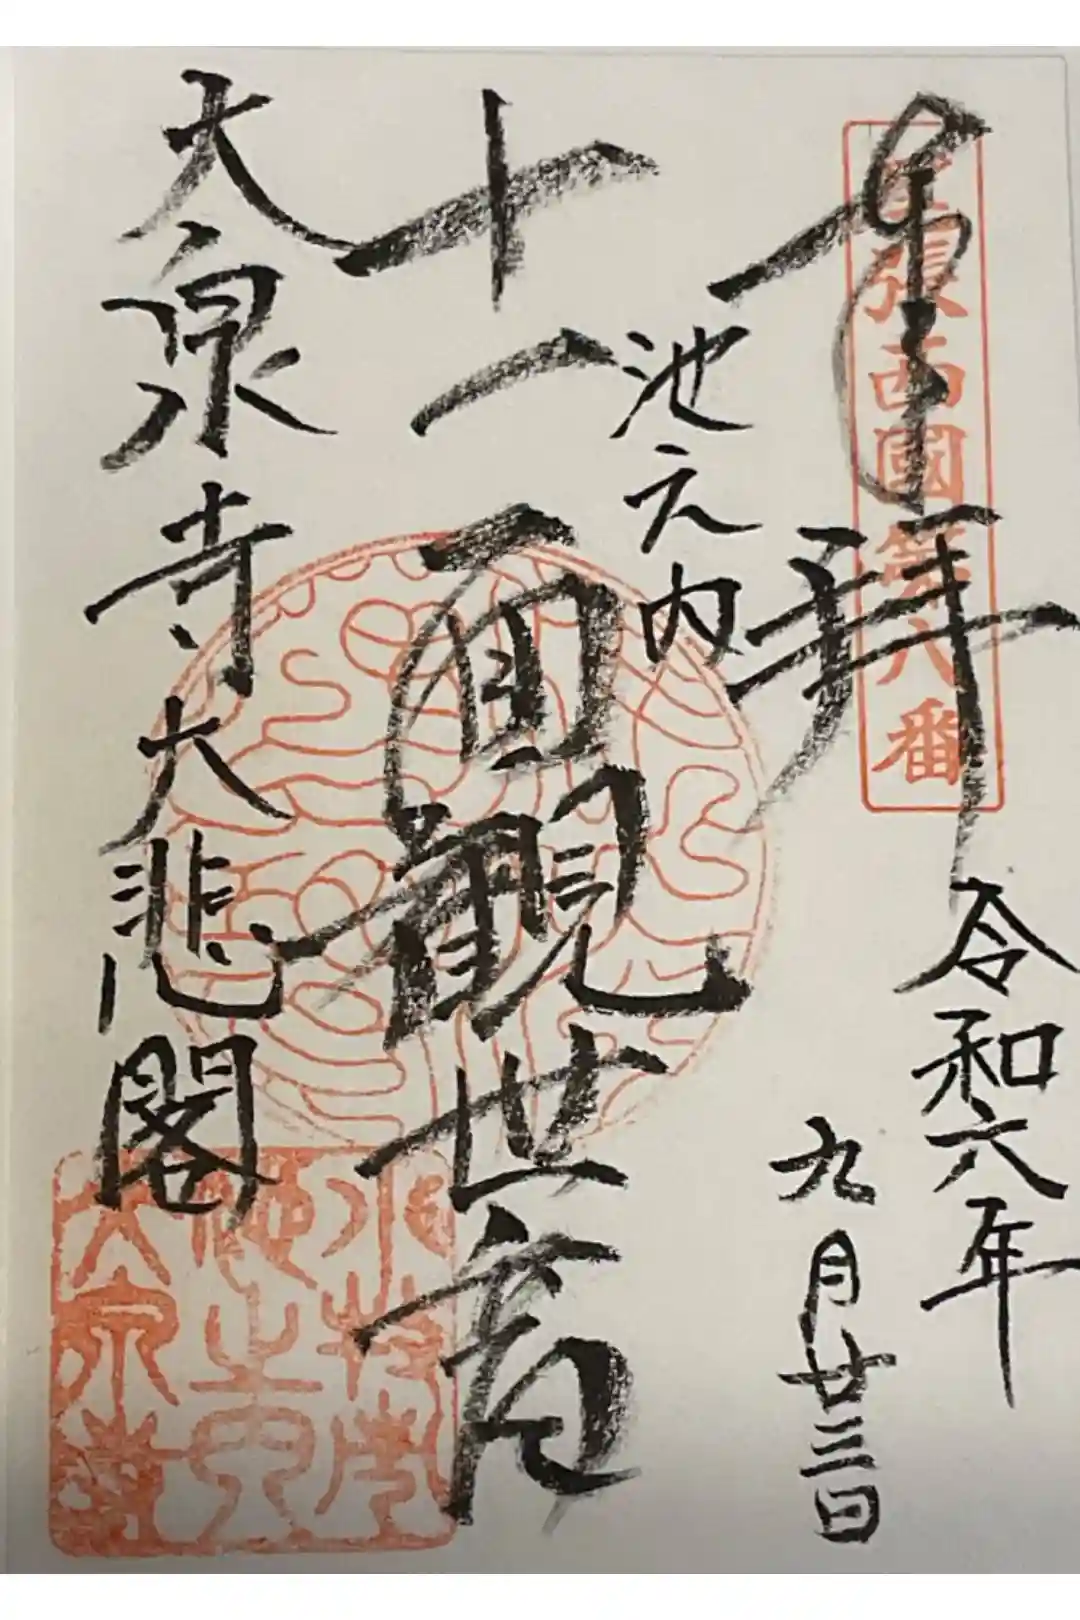 奉拝
尾張西國第八番
令和六年
九月廿三日
池之内
十一面観世音
大泉寺大悲閣
池之内